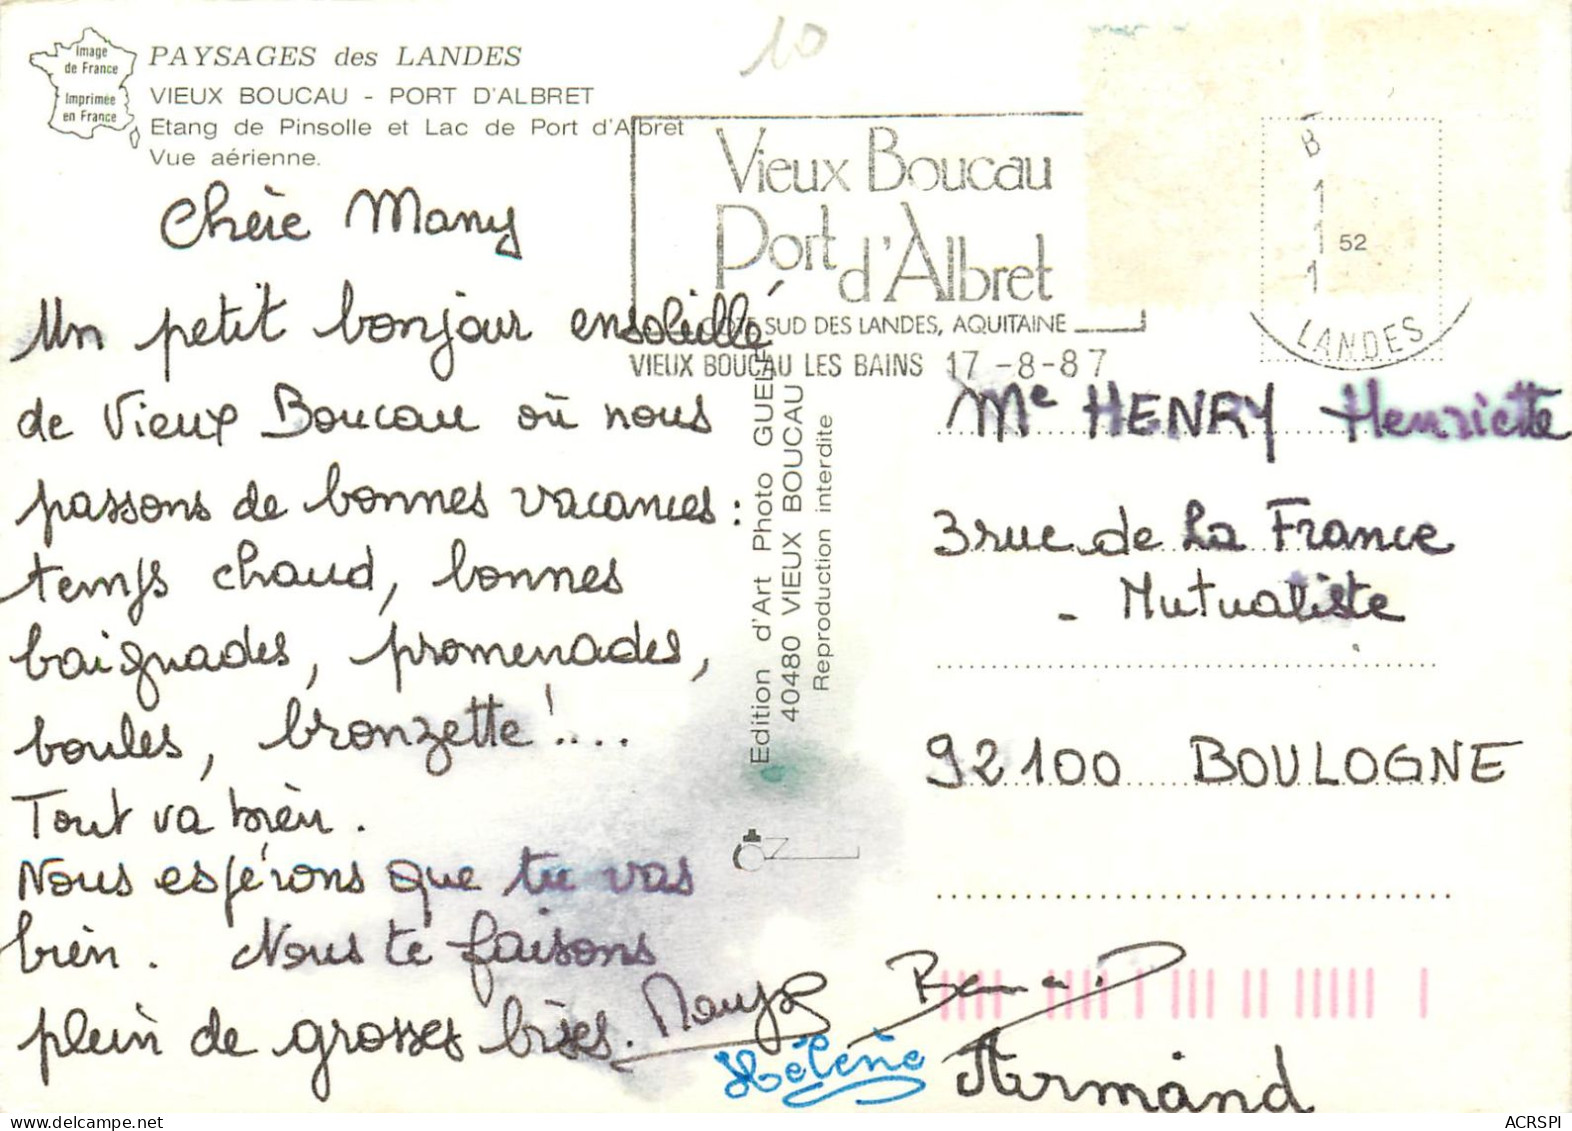 10
Image
de France
Imprimée
en France
PAYSAGES des LANDES
VIEUX BOUCAU - PORT D'ALBRET
Etang de Pinsolle et Lac de Port d'Albret
Vue aérienne.
Vieux Boucau
Port d'Albret
COTE SUD DES LANDES, AQUITAINE
VIEUX BOUCAU LES BAINS 17-8-87
B
1
1
1
52
LANDES
Chère Many
Un petit bonjour ensoleillé
de Vieux Boucau où nous
passons de bonnes vacances :
temps chaud, bonnes
baignades, promenades,
boules, bronzette !....
Tout va bien.
Nous espérons que tu vas
bien. Nous te faisons
plein de grosses bises.
Bernard
Hélène
Armand
Edition d'Art Photo GUELF
40480 VIEUX BOUCAU
Reproduction interdite
Me HENRY Henriette
3 rue de La France
- Mutualiste
92100 BOULOGNE
ACRSPI